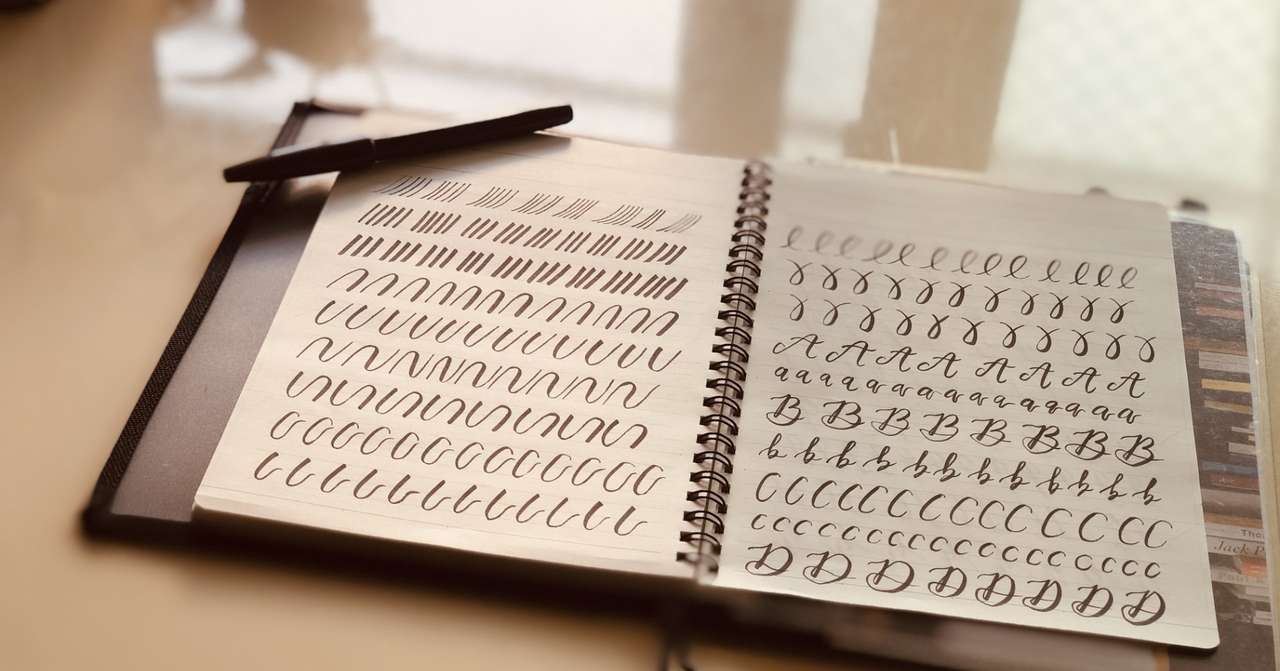 A A A A A A A A
a a a a a a a a a a a a a a a
B B B B B B B B
b b b b b b b b b b b b
C C C C C C C C C C C C C C
c c c c c c c c c c c c c c c c
D D D D D D D D
Jack